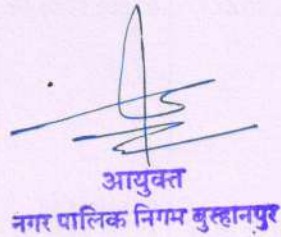 आयुक्त
नगर पालिक निगम बुरहानपुर